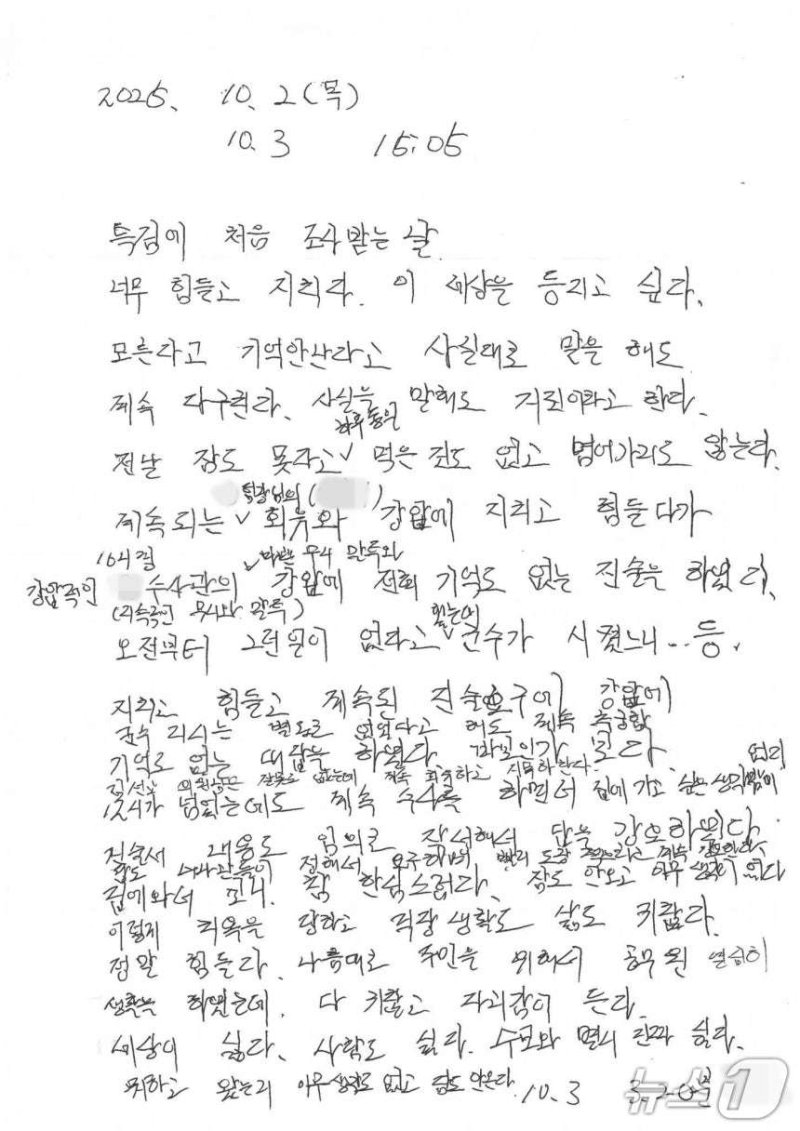 2025. 10. 2 (목)
10. 3 15:05
특검에 처음 조사받는 날.
너무 힘들고 지치다. 이 세상을 등지고 싶다.
모른다고 기억안난다고 사실대로 말을 해도
계속 다구친다. 사실을 말해도 거짓이라고 한다.
하루 종일
전날 잠도 못자고 ˅ 먹은 것도 없고 넘어가지도 않는다.
팀장님의 ( )
계속되는 ˅ 회유와 강압에 지치고 힘들다가
10시경 ˅ 무시 말투와
강압적인 수사관의 강압에 전혀 기억도 없는 진술을 하였다.
(지속적인 무시와 말투) 힘든데
오전부터 그런일이 없다고 ˅ 군수가 시켰느니...등.
지치고 힘들고 계속된 진술요구에 강압에
군수 지시는 별도로 없었다고 해도 계속 추궁함
기억도 없는 대답을 하였다.
김선교 의원은 잘못도 없는데 계속 회유하고 지목하란다.
12시가 넘었는데도 계속 수사를 하면서 집에 가고 싶은 생각밖에 없다
진술서 내용도 임의로 작성해서 답을 강요하였다.
수사관들이 정해서 요구하며 빨리 도장 찍으라고 계속 강요한다.
집에와서 보니 참 한심스럽다. 잠도 안오고 아무 생각이 없다
이렇게 치욕을 당하고 직장생활도 삶도 귀찮다.
정말 힘들다. 나름대로 주민을 위해서 공무원 열심히
생활을 하였는데. 다 귀찮고 자괴감이 든다.
세상이 싫다. 사람도 싫다. 수모와 멸시 진짜 싫다.
왔는지 아무생각도 없고 잠도 안온다. 10. 3 3-20분
뉴스1